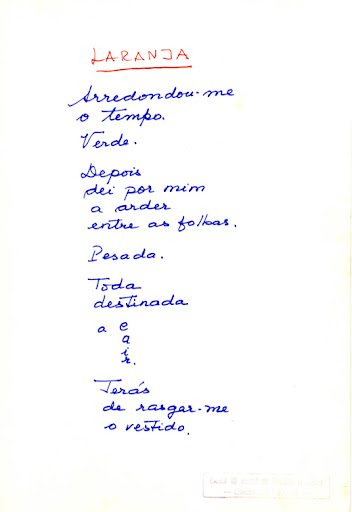 LARANJA
Arredondou-me
o tempo.
Verde.
Depois
dei por mim
a arder
entre as folhas.
Pesada.
Toda
destinada
a c
a
i
r.
Terás
de rasgar-me
o vestido.